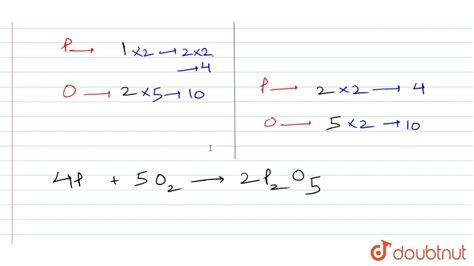 P → 1 × 2 → 2 × 2
→ 4
O → 2 × 5 → 10
P → 2 × 2 → 4
O → 5 × 2 → 10
4P + 5O₂ → 2P₂O₅
doubtnut